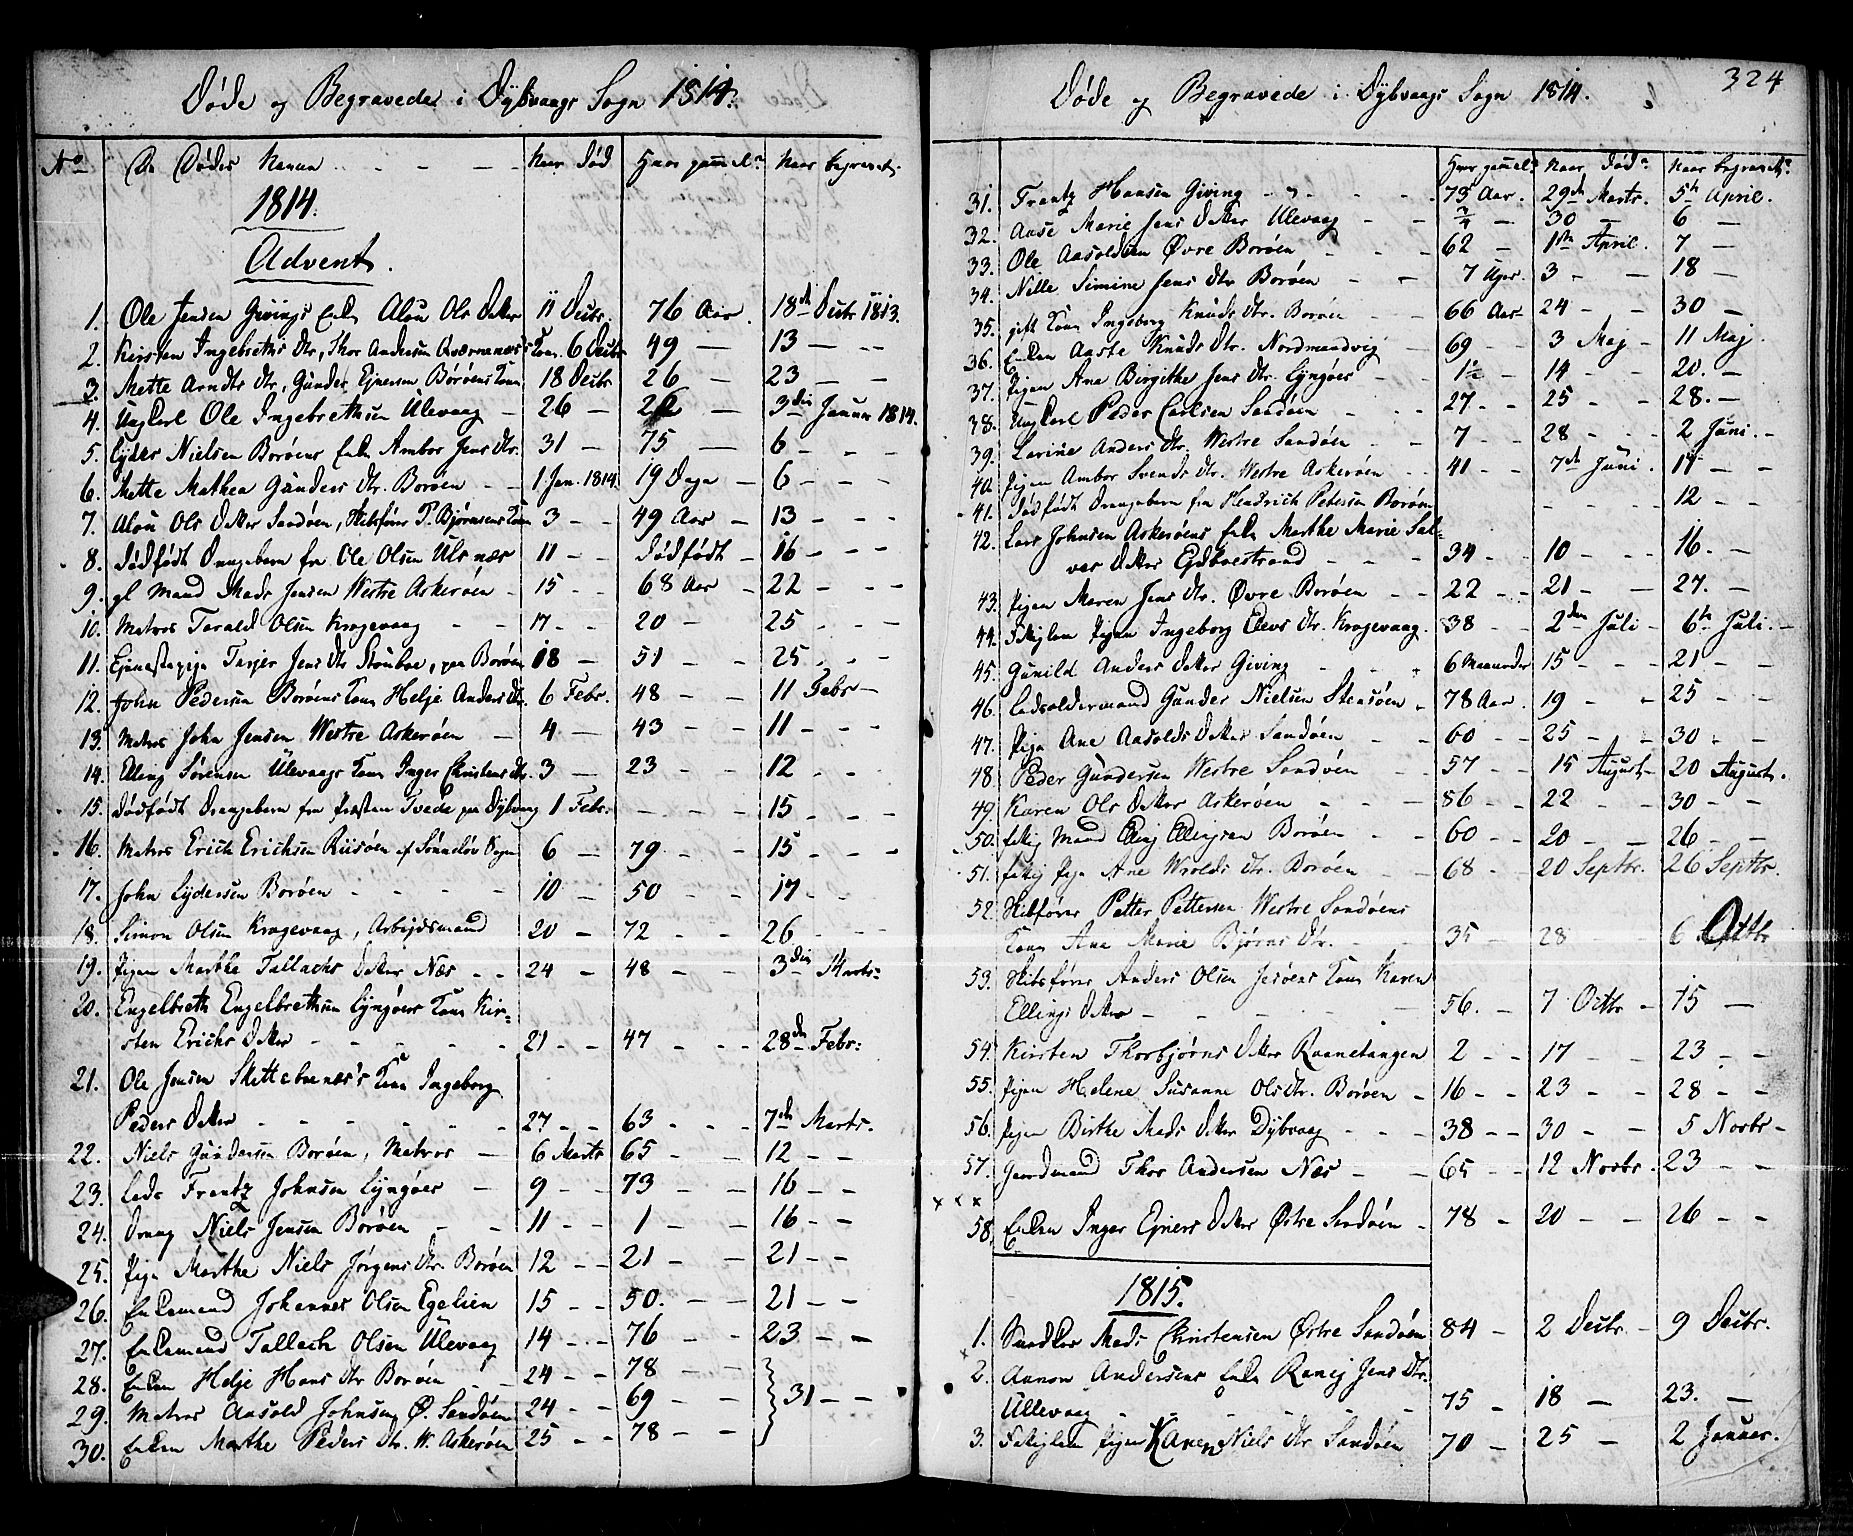 Døde og Begravede i Dybvaags Sogn 1814.
No De Dødes Navne - - - Naar Død Hvor gammel Naar begravet.
1814.
Advent.
1. Ole Jensen Givings Enke Aløu Ols Datter 11 Decbr. 76 Aar. 18de Decbr 1813.
2. Kirsten Ingebreths Dtr, Thor Andersen Qværnenæs's Kone 6 Decbr 49 — 13 — —
3. Mette Arndts Dtr, Gunder Ejnersen Borøens Kone 18 Decbr 26 — 23 — —
4. Ungkarl Ole Ingebrethsen Ulevaag — 26 — 3die Januar 1814.
5. Lyder Nielsen Borøens Enke Ambor Jens Dtr. 31 — 75 — 6 - - -
6. Mette Mathea Gunders Dtr. Borøen - - 1 Jan. 1814. 19 Dage — 6 - - -
7. Aløu Ols Datter Sandøen, Skibsfører P. Bjørnsens Kone 3 - - 49 Aar — 13 - - -
8. Dødfødt Drengebarn fra Ole Olsen Ulsnæs 11 - - Dødfødt — 16 - - -
9. gl Mand Mads Jensen Westre Askerøen - 15 - - 68 Aar - 22 - - -
10. Matros Tarald Olsen Krogevaag - - 17 - - 20 - 25 - - -
11. Tjenestepige Tarjer Jens Dtr Stouboe, paa Borøen 18 — 51 - - 25 - - -
12. John Pedersen Borøens Kone Helje Anders Dtr. 6 Febr. 48 - - 11 Febr —
13. Matros John Jensen Westre Askerøen — 4 — 43 - - 11 - - -
14. Elling Sørensen Ulevaags Kone Inger Christens Dtr. 3 — 23 - - 12 - -
15. Dødfødt Drengebarn fra Præsten Tvede paa Dybvaag 1 Febr. - - - - 15 - - -
16. Matros Erich Erichsen Riisøen af Søndeløv Sogn 6 — 79 - - 15 - - -
17. John Lydersen Borøen - - - - 10 — 50 - - 17 - -
18. Simon Olsen Krogevaag, Arbejdsmand 20 — 72 - - 26 - - -
19. Pigen Marthe Tallachs Datter Næs - - 24 - 48 - - 3die Marts
20. Engelbreth Engelbrethsen Lyngøers Kone Kir-
sten Erichs Datter - - - - - 21 - - 47 - - - 28de Febr:
21. Ole Jensen Skettebenæs's Kone Ingeborg
Peders Datter - - - - - - 27 - - 63 - - - 7de Marts.
22. Niels Gundersen Borøen, Matros - 6 Marts 65 - - 12 - -
23. Lods Frantz Johnsen Lyngøer — 9 - - 73 - - 16 - -
24. Dreng Niels Jensen Borøen - - 11 - - 1 - - 16 - -
25. Pige Marthe Niels Jørgens Dtr. Borøen 12 - - 21 - - 21 - -
26. Enkemand Johannes Olsen Egelien 15 - - 50. - - 21 - -
27. Enkemand Tallach Olsen Ulevaag 14 - - 76 - - 23 - —
28. Enken Helje Hans Dtr Borøen - - 24 - - 78 - -
29. Matros Aasold Johnsen Ø. Sandøen 24 - - 69 - - 31 - -
30. Enken Marthe Peders Dtr. W. Askerøen 25 - - 78 - -
324
Døde og Begravede i Dybvaags Sogn 1814.
Hvor gammel. Naar Død. Naar begravet.
31. Frantz Hansen Giving - - - - 75 Aar. 29de Marts. 5te April.
32. Aase Marie Jens Datter Ulevaag - - 3/4 — 30 — 6 —
33. Ole Aasoldsen Øvre Borøen - - - 62 — 1ste April. 7 —
34. Nille Simine Jens Dtr Borøen - - 7 Uger. 3 - - 18 —
35. gift Kone Ingeborg Knuds Dtr. Borøen - - 66 Aar 24 - - 30 —
36. Enken Aaste Knuds Dtr. Nordmandvig - - 69 - - 3 Maj - 11 Maj.
37. Pigen Ane Birgithe Jens Dtr. Lyngøer - - 1½ - - 14 - - 20. -
38. Ungkarl Peder Carlsen Sandøen - - - 27 - - 25 - - 28. -
39. Larine Anders Dtr. Westre Sandøen - - 7 - - 28 - - 2 Juni. -
40. Pigen Ambor Svends Dtr. Westre Askerøen - - 41 - - 7de Juni. 11 - -
41. Dødfødt Drengebarn fra Hendrich Petersen Borøen - - - - 12 - -
42. Lars Johnsen Askerøens Enke Marthe Marie Sal-
vers Datter Gjdboestrand - - - 34 - - 10 - - - 16. -
43. Pigen Maren Jens Dtr. Øvre Borøen - - 22 - - 21 - - 27. -
44. Fattiglem Pigen Ingeborg Elevs Dtr. Krogevaag. 38 - - 2den Juli - 6te Juli. -
45. Gunild Anders Datter Giving - - - 6 Maaneder 15 - - - 21 - -
46. Lodsoldermand Gunder Nielsen Stensøen - 78 Aar. 19 - - 25 - -
47. Pige Ane Aasolds Datter Sandøen - - 60 - - 25 - - 30 - -
48. Peder Gundersen Westre Sandøen - - 57 - - 15 August - 20 August.
49. Karen Ols Datter Askerøen - - - 86 - - 22 - - 30 - -
50. fattig Mand Elling Ellingsen Borøen - - 60 - - 20 - - 26 - -
51. fattig Pige Ane Wrolds Dtr. Borøen - - 68 - - 20 Septbr. 26 Septbr.
52. Skibsfører Petter Pettersen Westre Sandøens
Kone Ane Marie Bjørns Dtr. - - 35 - 28 - - 6 Octbr
53. Skibsfører Anders Olsen Jesøens Kone Karen
Ellings Datter - - - - - - 56. - 7 Octbr - 15 —
54. Kirsten Thorbjørns Datter Raanetangen 2 - - 17 - - 23 - -
55. Pigen Helene Susanne Ols Dtr. Borøen - 16 - - 23 - - 28 - -
56. Pigen Birthe Mads Datter Dybvaag - - - 38 - - 30 - - 5 Novbr -
57. Gaardmand Thor Andersen Næs - - 65 - - 12 Novbr. 23 - -
x x x
58. Enken Inger Ejners Datter Østre Sandøen - 78 - 20 - - 26 - -
1815.
1. Mads Christensen Østre Sandøen 84 - 2 Decbr. - 9 Decbr.
2. Aanon Andersens Enke Ranej Jens Dtr.
Ullevaag - - - - - - 75 - 18 — 23. —
3. Fattiglem Pigen Karen Niels Dtr Sandøen 70 - 25 — 2 Januar.